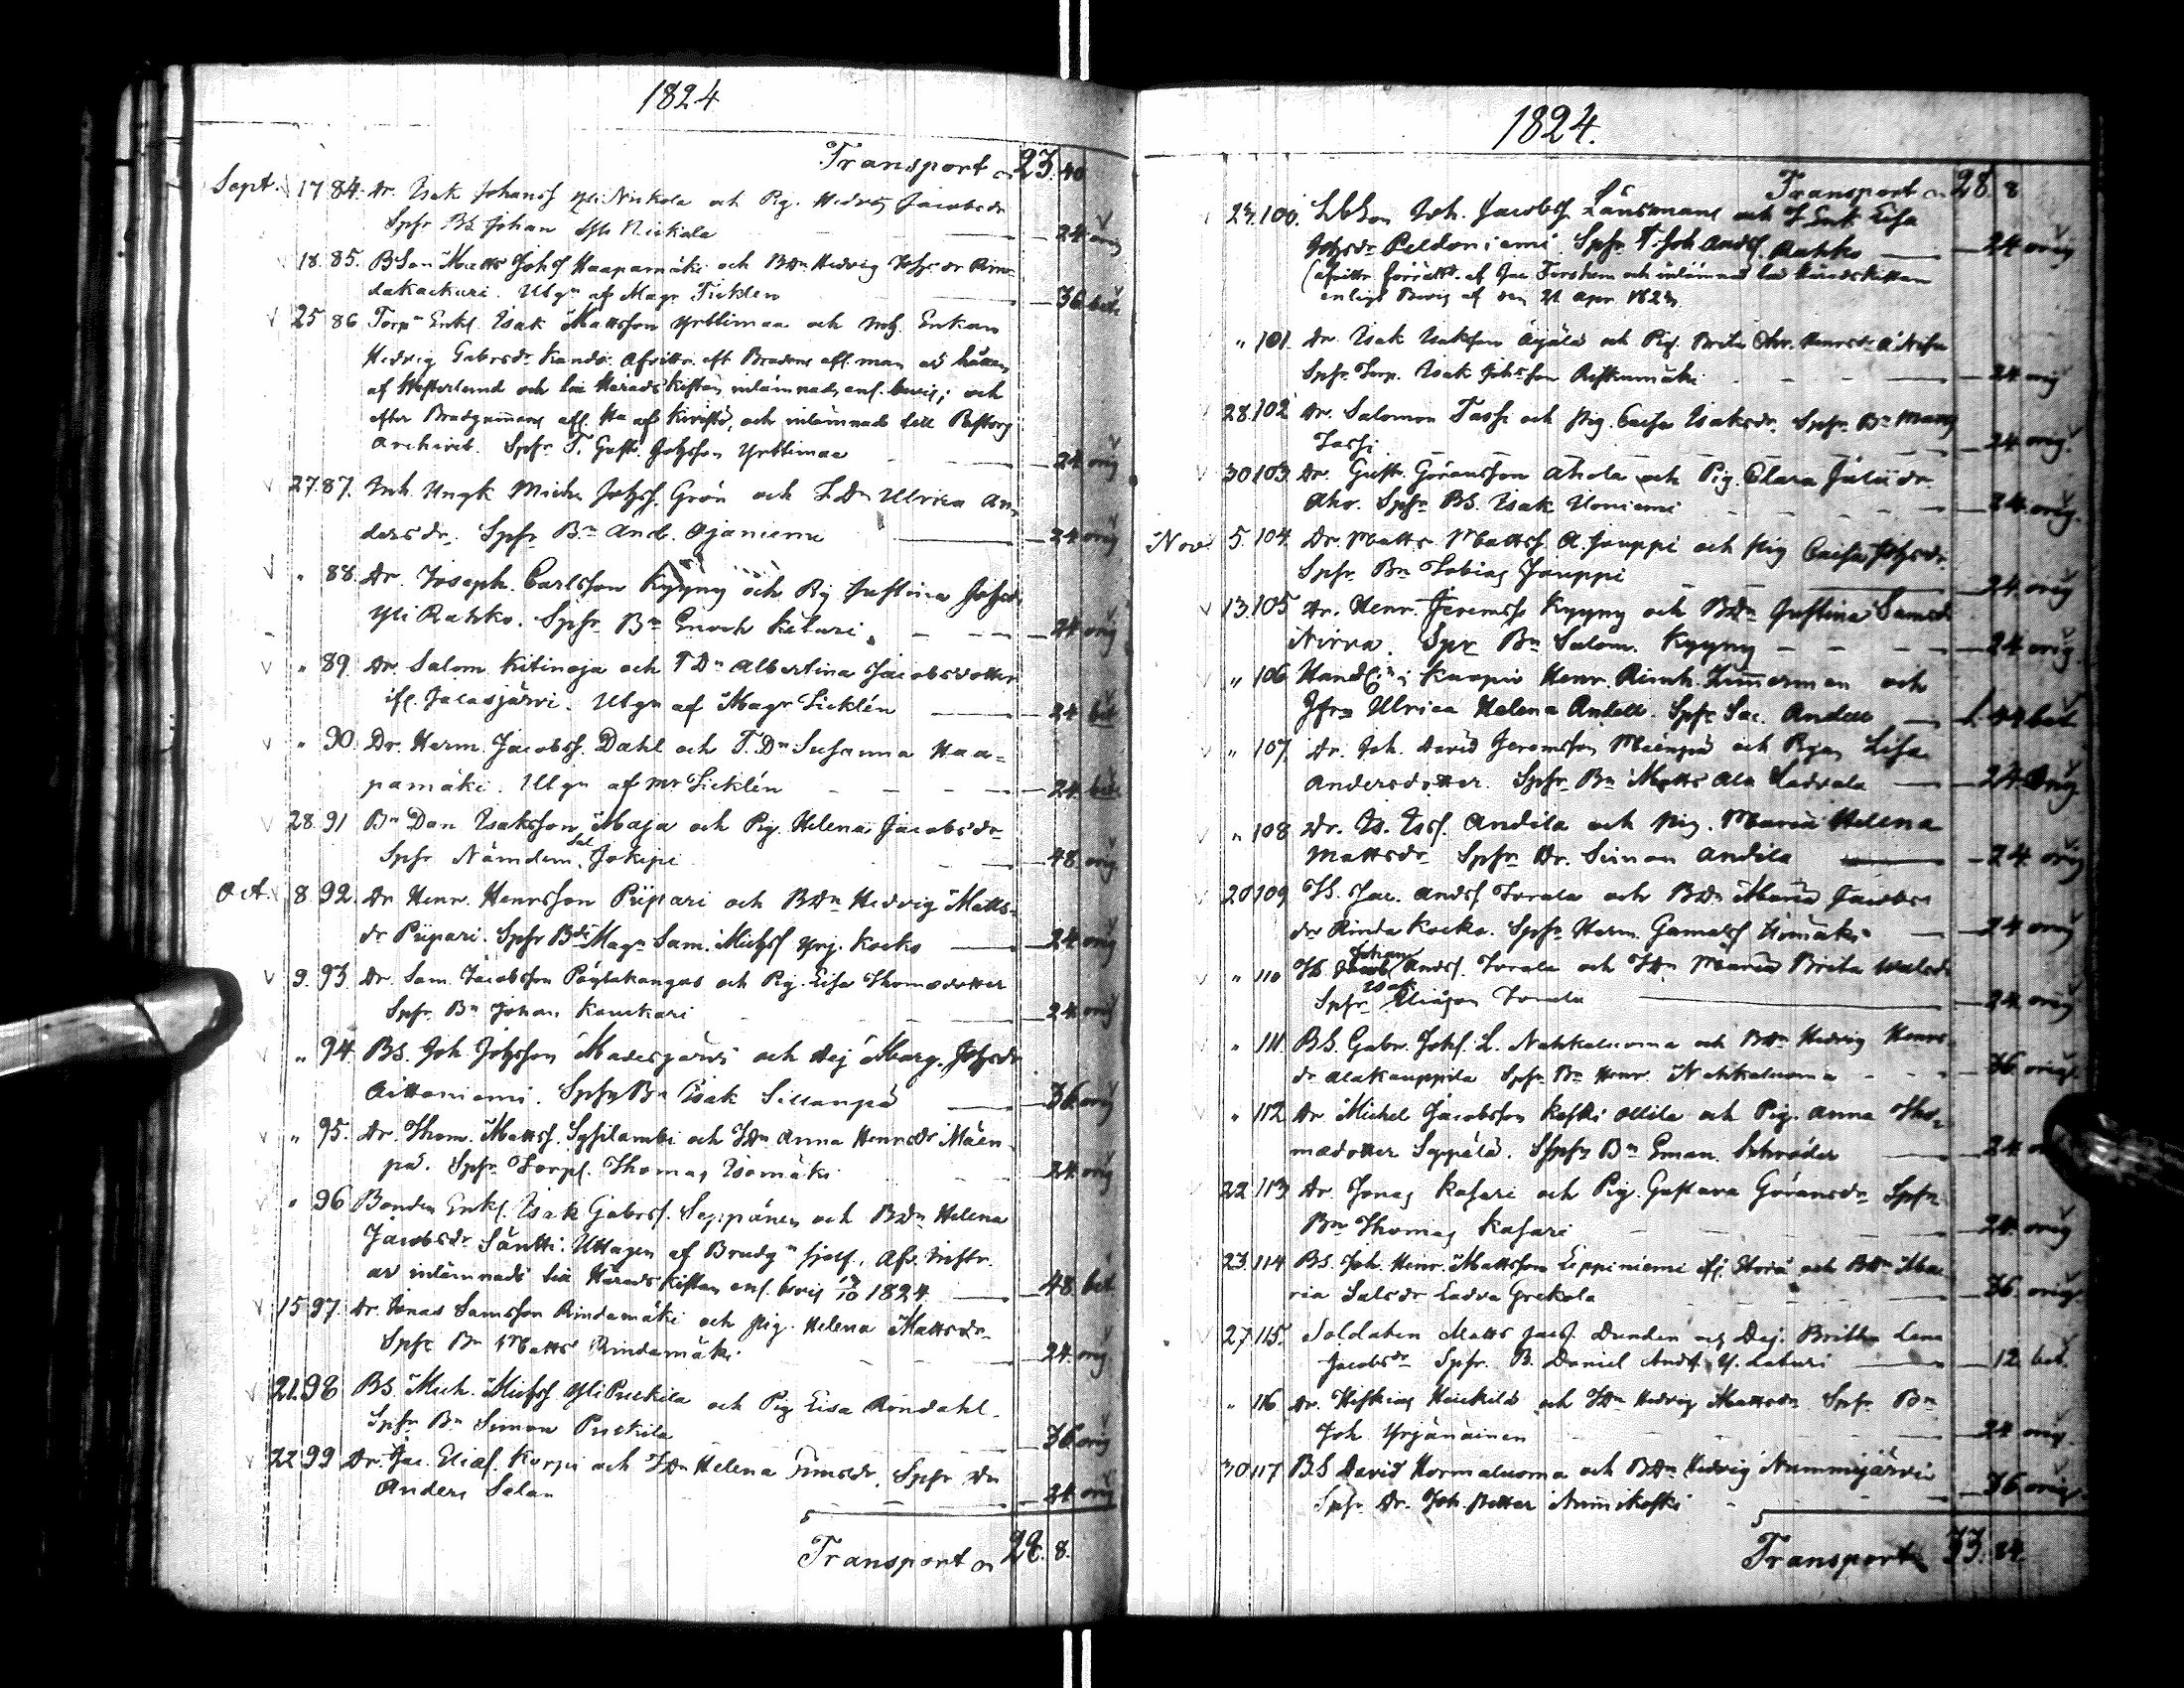 1824
Transport 23. 40
Sept. 17 84. Dr. Isak Johansf Yli Nickola och Pig. Hedvig Jacobsdr
Spfr BS. Johan Yli Nickola — 24 orig
18. 85. BSon Matts Johsf Haapamäki och BDn Hedvig Johsdr Rin-
dakackuri. Utgn af Magr Ticklén — 36 bet
25 86 Torpn Enkl. Isak Mattsson Yrttimaa och Enkan
Hedvig Gabrsdr. Afvittr. eft Brudens afl. man är hållen
af och till Häradskistan inlämnad, enl. bevis; och
efter Brudgummens afl. Ha af Kivistö, och inlämnad till Pastors
Archivet. Spfr T. Gust. Johsson Yrttimaa — 24 orig
27. 87. Inh. Ungk Mich. Johsf. Grön och TDn Ulrica An-
dersdr. Spfr Bn And. Ojaniemi — 24 orig
" 88. Dr. Joseph Carlsson Kyyny och Pig Justina Johsdr
Yli Rahko. Spfr Bn Enoch Kituri — 24 orig
" 89. Dr. Salom. Kitinoja och TDn Albertina Jacobsdotter
ifl. Jalasjärvi. Utgn af Magr Ticklén — 24 bet
" 90. Dr. Herm. Jacobsf. Dahl och T. Dn Susanna Haa-
pamäki. Utgn af Mr Ticklén — 24 bet
28. 91 Bn Dan Isaksson Maja och Pig. Helena Jacobsdr
Spfr Nämdem. Sal. Jokipi — 48 orig
Oct. 8. 92. Dr Henr. Henrsson Piipari och BDn Hedvig Matts-
dr Piipari. Spfr Bdn Magn Sam. Michsf Yrj. Kocko — 24 orig
9. 93. Dr. Sam. Jacobsson Pöytakangas och Pig. Lisa Thomædotter
Spfr. Bn Johan Kauckari — 24 orig
" 94. BS. Joh. Johsson Madesjärvi och Dej Marg. Johsdr
Aittoniemi. Spfr Bn Isak Sillanpä — 36 orig
" 95. Dr. Thom. Mattsf. Sysilambi och TDn Anna Henrsdr Mäen-
pä. Spfr Torpf. Thomas Isomäki — 24 orig
" 96 Bonden Enkl. Isak Gabrsf. Seppänen och BDn Helena
Jacobsdr Säntti. Uttagen af Brudgn sjelf. Afv. instr.
är inlämnad till Häradskistan enl. bevis 1824 — 48 bet
15 97. Dr. Jonas Samsson Rindamäki och Pig. Helena Mattsdr
Spfr Bn Matts Rindamäki — 24 orig
21. 98 BS. Mich. Michsf Yli Puckila och Pig Lisa Röndahl
Spfr Bn Simon Puckila — 36 orig
22 99 Dr. Jac. Eliæf. Karpi och TDn Helena Simsdr, Spfr Dn
Anders Salan — 24 orig
Transport 28. 8.
1824.
Transport 28. 8
23. 100. Joh. Jacobsf Länsmans och T Enk Lisa
Johsdr Peldoniemi Spfr T. Joh. Andsf. Rahko — 24 orig
(Afvittr. förrättd. af Jac. Forshem och inlämnad till Häradskistan
enligt Bevis af den 21 Apr. 1824.
" 101. Dr. Isak Isaksson Äijälä och Pig. Brita Chr. Henrsdr
Spfr. Torp. Isak Johsson Ristinmäki — 24 orig
28. 102 Dr. Salomon Tassi och Pig. Caisa Isaksdr. Spfr. Bn Matts
Tassi — 24 orig.
30 103. Dr. Gustr. Göransson Ahola och Pig. Clara Juliidr
Aho. Spfr BS. Isak Uoniemi — 24 orig.
Nov. 5. 104. Dr. Matts Mattsf. A. Jauppi och Pig Caisa Johsdr.
Spfr Bn Tobias Jauppi — 24 orig
13. 105 Dr. Henr. Jeremsf Kyyny och BDn Justina Samsdr
Nirva. Spr Bn Salom. Kyyny — 24 orig.
" 106 Handl. i Kuopio Henr. Rinh. Zimmerman och
Jfrn Ulrica Helena Andell. Spfr Sac. Andell — bet
" 107. Dr. Joh. David Jeremsson Mäenpä och Pigan Lisa
Andersdotter. Spfr Bn Matts Ala Ladvala — 24. orig
" 108 Dr. Is. Issf. Andila och Pig. Maria Helena
Mattsdr Spfr Dr. Simon Andila — 24. orig
20 109 TS. Jac. Andsf Torala och BDn Maria Jacobs-
dr Rinda Kocko. Spfr Herm. Gamalsf Homäki — 24 orig
" 110 TS. Johan Andsf. Torala och TDn Maria Brita
Spfr Isak Eliæson Torala — 24 orig
" 111. BS. Gabr. Johsf. L. Nahkaluoma och BDn Hedvig Henrs-
dr Alakauppila Spfr Bn Henr. Nahkaluoma — 36 orig.
" 112 Dr Michel Jacobsson Koski Ollila och Pig. Anna Tho-
mædotter Seppälä. Spfr Bn Eman. Schröder — 24
22 113 Dr. Jonas Kasari och Pig. Gustava Göransdr Spfr
Bn Thomas Kasari — 24 orig
23. 114 BS. Joh. Henr. Mattsson Leppiniemi ifr. Storå och BDn Ma-
ria Salsdr Ladva Grekola — 36 orig.
27 115. Soldaten Matts Jacsf. Dunden och Dej. Britha Lena
Jacobsdr Spfr. B. Daniel Andsf. Y. Laturi — 12. bet.
" 116 Dr. Hiskias Heickilä och TDn Hedvig Mattsdr Spfr Bn
Joh. Yrjänäinen — 24 orig.
30 117 BS David Hormaluoma och BDn Hedvig Nummijärvi
Spfr Dr. Joh. Petter Numikoski — 36 orig.
Transport 33. 84.